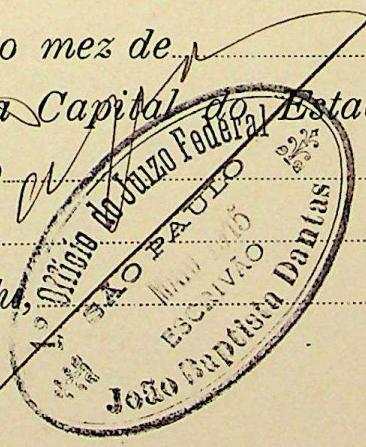 o mez de
a Capital do Estad
1º Officio do Juizo Federal
SÃO PAULO
ESCRIVÃO
João Baptista Dantas